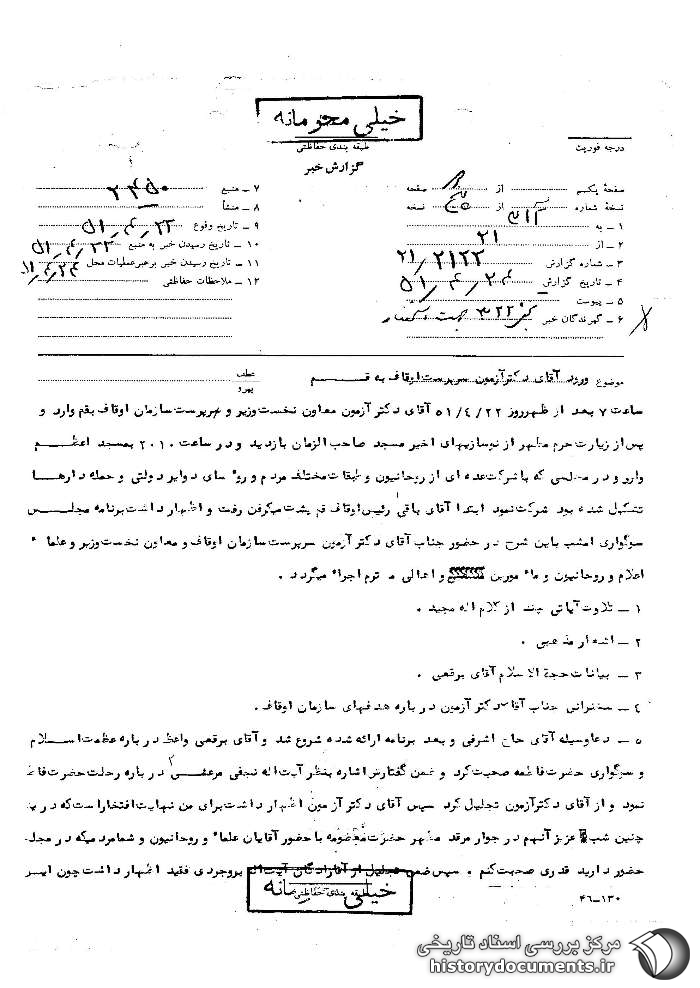 خیلی محرمانه
طبقه بندی حفاظتی
گزارش خبر
درجه فوریت
صفحهٔ یکم از صفحه
نسخهٔ شماره از پنج نسخه
۱ ـ به
۲ ـ از ۲۱
۳ ـ شماره گزارش ۲۱/۲۱۲۲
۴ ـ تاریخ گزارش ۵۱/۴/۲۴
۵ ـ پیوست
۶ ـ گیرندگان خبر ۳۲۲
۷ ـ منبع ۲۴۵۰
۸ ـ منشأ
۹ ـ تاریخ وقوع ۵۱/۴/۲۲
۱۰ ـ تاریخ رسیدن خبر به منبع ۵۱/۴/۲۲
۱۱ ـ تاریخ رسیدن خبر برهبرعملیات محل
۱۲ ـ ملاحظات حفاظتی
موضوع ورود آقای دکترآزمون سرپرست اوقاف به قـــم
عطف
پیرو
ساعت ۷ بعد از ظهرروز ۵۱/۴/۲۲ آقای دکتر آزمون معاون نخست وزیر و سرپرست سازمان اوقاف بقم وارد و
پس از زیارت حرم مطهر از نوسازیهای اخیر مسجد صاحب الزمان بازدید و در ساعت ۲۰۱۰ بمسجد اعظـــم
وارد و در مجلسی که با شرکت عده ای از روحانیون و طبقات مختلف مردم و روٴسای دوایر دولتی و حمله دارهـا
تشکیل شده بود شرکت نمود ابتدا آقای باقی رئیس اوقاف قم پشت میکرفن رفت و اظهار داشت برنامه مجلس
سوگواری امشب باین شرح در حضور جناب آقای دکتر آزمون سرپرست سازمان اوقاف و معاون نخست وزیر و علماء
اعلام و روحانیون و ماٴمورین و اهالی محترم اجراء میگردد .
۱ ـ تلاوت آیاتی چند از کلام اله مجید .
۲ ـ اشعار مذهبی .
۳ ـ بیانات حجة الاسلام آقای برقعی .
٤ ـ سخنرانی جناب آقای دکتر آزمون در باره هدفهای سازمان اوقاف .
۵ ـ دعا وسیله آقای حاج اشرفی و بعد برنامه ارائه شده شروع شد و آقای برقعی واعظ در باره عظمت اســـلام
و سوگواری حضرت فاطمه صحبت کرد و ضمن گفتارش اشاره بنظر آیت اله نجفی مرعشـی در باره رحلت حضرت فاط
نمود و از آقای دکترآزمون تجلیل کرد سپس آقای دکتر آزمون اظهار داشت برای من نهایت افتخار است که در یـ
چنین شب عزیز آنهم در جوار مرقد مطهر حضرت معصومه با حضور آقایان علماء و روحانیون و شما مردمیکه در مجلـ
حضور دارید قدری صحبت کنم . سپس ضمن تجلیل از آقازادگان آیت اله بروجردی فقید اظهار داشت چون ایـر
خیلی محرمانه
طبقه بندی حفاظتی
۴۶-۱۳۰
مرکز بررسی اسناد تاریخی
historydocuments.ir